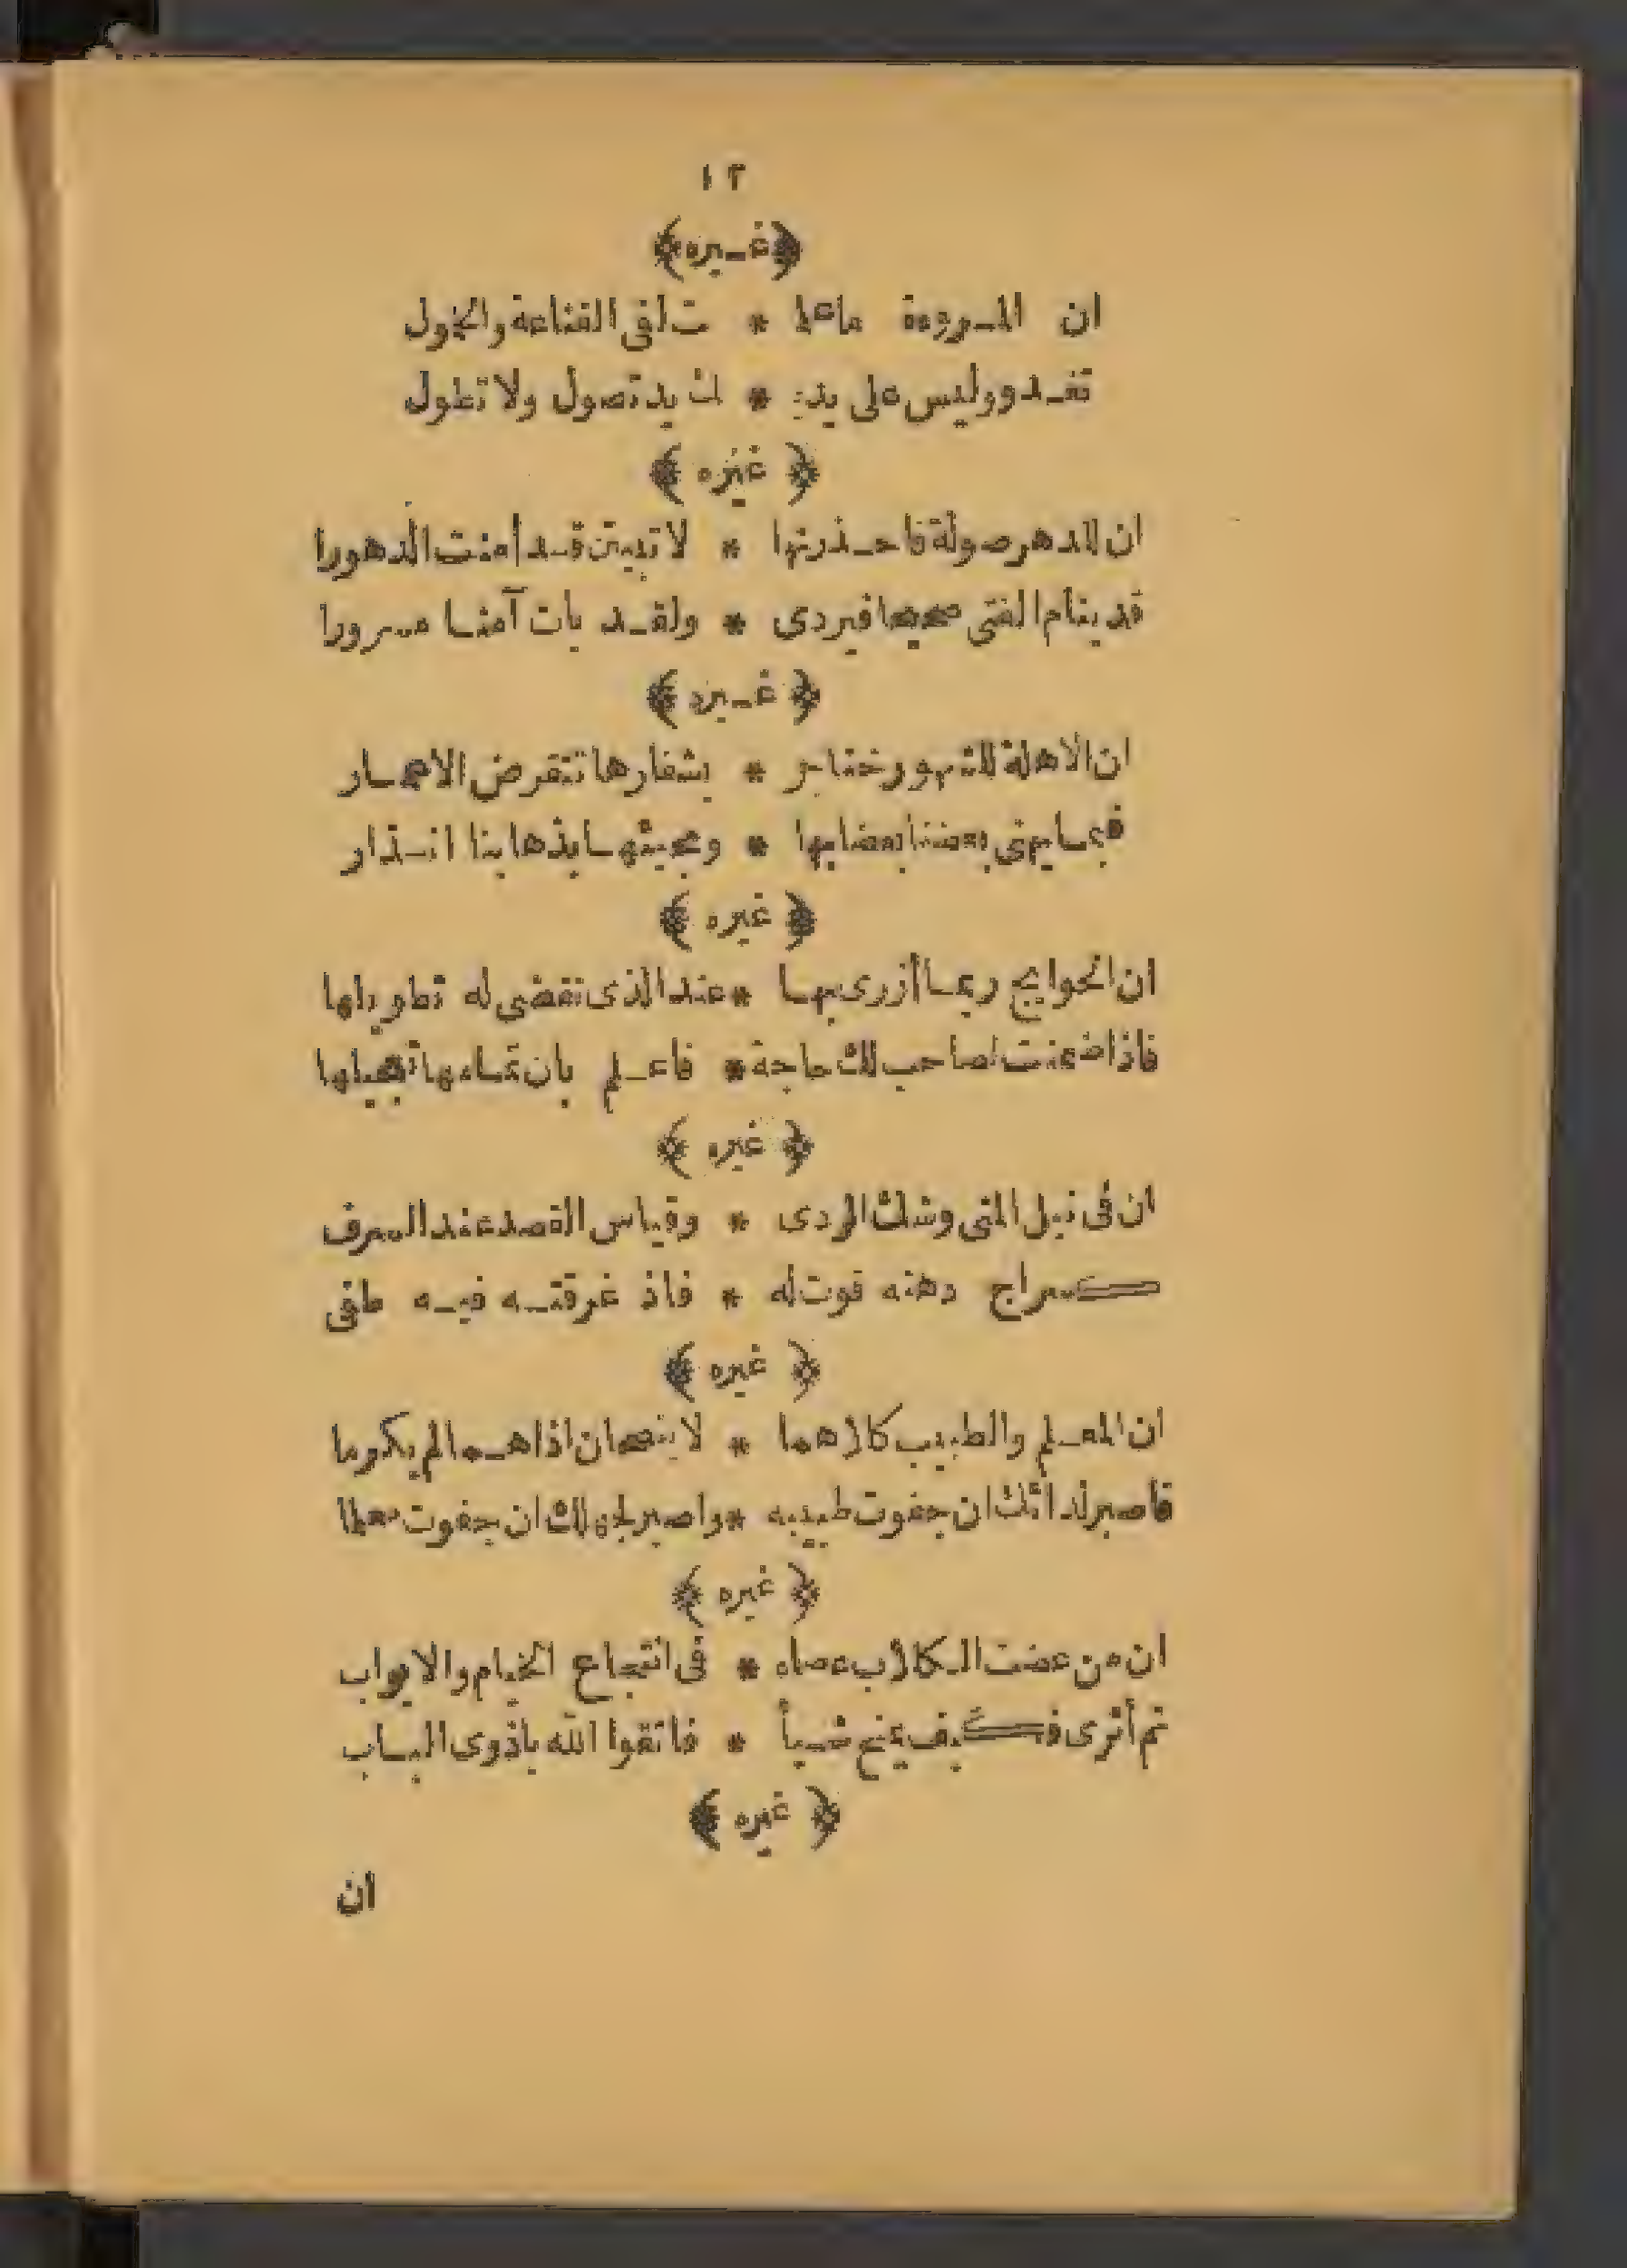 ١٢
﴿غـيره﴾
ان المـروءة ماعلـ * ـت لفى القناعة والخمول
تغـدو وليس على يديـ * ـك يد تصول ولا تطول
﴿ غيره ﴾
ان للدهر صولة فاحـذرنها * لا تبيتن قـد أمنت الدهورا
قد ينام الفتى صحيحا فيردى * ولقـد بات آمنـا مسرورا
﴿ غـيره ﴾
ان الاهلة للشهور خناجر * بشفارها تنقرض الاعمـار
فبمـا يهنى بعضنا بعضا بها * ومجيئهـا بذهابنا انـذار
﴿ غيره ﴾
ان الحوايج ربمـا أزرى بهـا * عند الذى تقضى له تطويلها
فاذا ضمنت لصاحب لك حاجة * فاعـلم بان تمـامها تعجيلها
﴿ غيره ﴾
ان فى نيل المنى وشك الردى * وقياس القصد عند السرف
كسراج دهنه قوت له * فاذ غرقتـه فيـه طفى
﴿ غيره ﴾
ان المعـلم والطبيب كلاهما * لا ينصحان اذا هـما لم يكرما
فاصبر لدائك ان جفوت طبيبه * واصبر لجهلك ان جفوت معلما
﴿ غيره ﴾
ان من عضت الكلاب عصاه * فى انتجاع الخيام والابواب
ثم أثرى فكيف يمنح شـيأ * فاتقوا الله ياذوى الالبـاب
﴿ غيره ﴾
ان